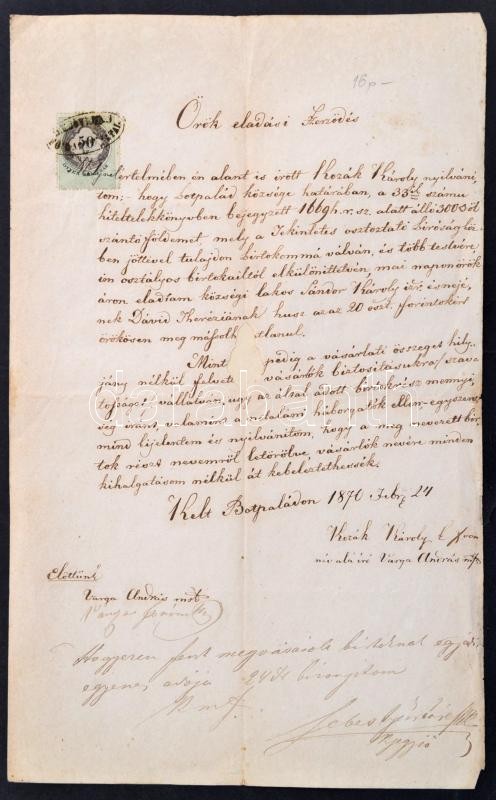 16p–
Örök eladási Szerződés
50
értelmében én alant is irott Kozák Károly nyilvání
tom; – hogy botpalád községe határában, a 33ik számu
hiteltelekkönyvben bejegyzett 1669 h.r. sz. alatt álló 300 □ öl
szántóföldemet, mely a Tekintetes osztoztató biróság köz
ben jöttével tulajdon birtokommá válván, és több testvére
im osztályos birtokaitól elkülönittetvén, mai napon örök
áron eladtam községi lakos Sándor Károly és neje
nek Dávid Theréziának husz azaz 20 oszt. forintokért
örökösen meg másolh tlanul.
Mint pedig a vásárlati összeget hily
jány nélkül felvete vásárlók biztositásukra szava
tosságot vállalván, ugy az által adott birtokrész mennyi
ség iránt, valamint a netaláni háborgatók ellen, egyszers
mind kijelentem és nyilvánitom, hogy a meg nevezett bir
tok részt nevemről letörölve, vásárlók nevére minden
kihalgatásom nélkül át kebeleztethessék.
Kelt Botpaládon 1870 Febr 24
Kozák Károly
név alá iró Varga András mk
Előttünk
Varga András mk
Varga
Hogy ezen fent megvásárolt birtoknak egy
egyenes adója 24 bizonyitom
Kmf.
jegyző
darabanth